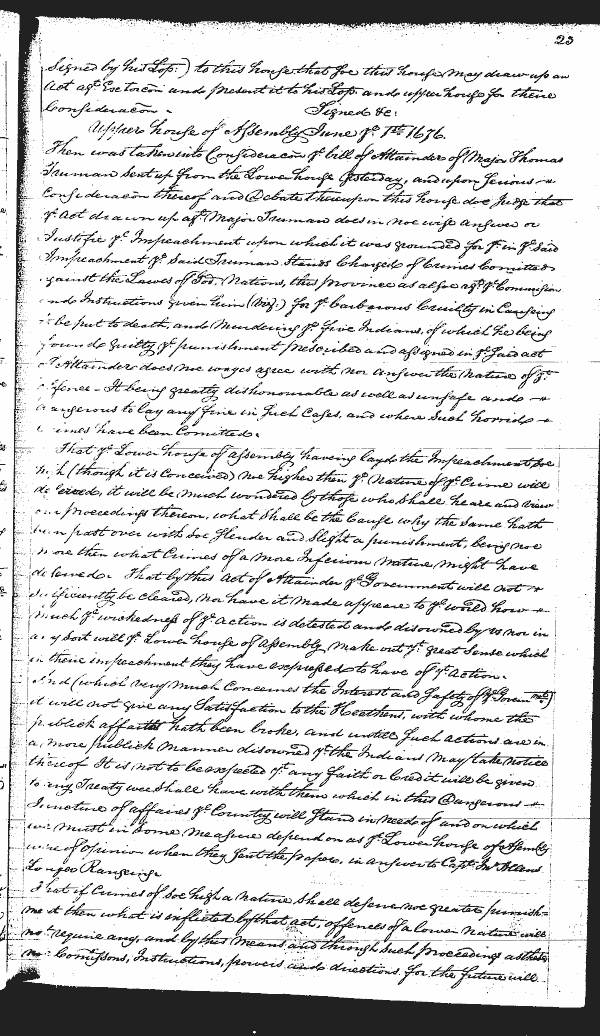 23
Signed by his Losp:) to this house that soe this house may draw up an
Act agt. Exctacon and present it to his Losp and upper house for there
Consideracon - Signed &c:
Upper house of Assembly June ye. 1st 1676.
Then was taken into Consideracon ye. bill of Attainder of Major Thomas
Truman sent up from the Lower house yesterday, and upon Serious
Consideracon thereof and Debate thereupon this house doe Judge that
ye. Act drawn up agt. Major Truman does in noe wise answer or
Justofie ye. Impeachment upon which it was grounded for yt. in ye. Said
Impeachment ye. Said Truman Stands Charged of Crimes Comitted
against the Lawes of God, Nations, this province as also agt. ye. Commision
and Instructions given him (vizt.) for ye. barbarous Cruilty in Causing
to be put to death, and Murdering ye. five Indians, of which he being
found guilty, ye. punishment prescribed and assigned in ye. Said act
of Attainder does noe wayes agree with nor answer the nature of ye.
offence - It being greatly dishonourable as well as unsafe and
dangerous to lay any fine in Such Cases, and where Such horrid
Crimes have been Comitted.
That ye. Lower house of assembly having layd the Impeachment soe
high (though it is Conceived) noe higher then ye. Nature of ye. Crime will
deserved, it will be much wondered by those who Shall heare and view
our proceedings thereon, what Shall be the Cause why the Same hath
been past over with Soe Slender and Slight a punishment, being noe
more then what Crimes of a more Inferiour nature might have
deserved. That by this Act of Attainder ye. Government will not
sufficiently be cleared, nor have it made appeare to ye. world how
much ye. wickedness of ye. action is detested and disowned by us nor in
any sort will ye. Lower house of Assembly, make out yt. great Sense which
in their impeachment they have expressed to have of ye. Action.
And (which very much Concernes the Interest and Safety of ye. Governmt.)
it will not give any Satisfaction to the Heathens, with whome the
publick affaires hath been broke, and untill Such actions are in
a more publick manner disowned yt. the Indians may take notice
thereof It is not to be expected yt. any faith or Credit will be given
to any Treaty wee Shall have with them which in this Dangerous
Juncture of affaires ye. County will Stand in need of and on which
wee must in Some measure depend on as ye. Lower house of Assembly
were of opinion when they Sent the papers, in answer to Capt. Jno. Allens
Ranging.
That if Crimes of Soe high a nature Shall deserve noe greater punish=
ment then what is inflicted by that act, offences of a lower Nature will
not require any, and by this means and through such proceedings as these
noe Comissons, Instructions, powers and directions for the future will